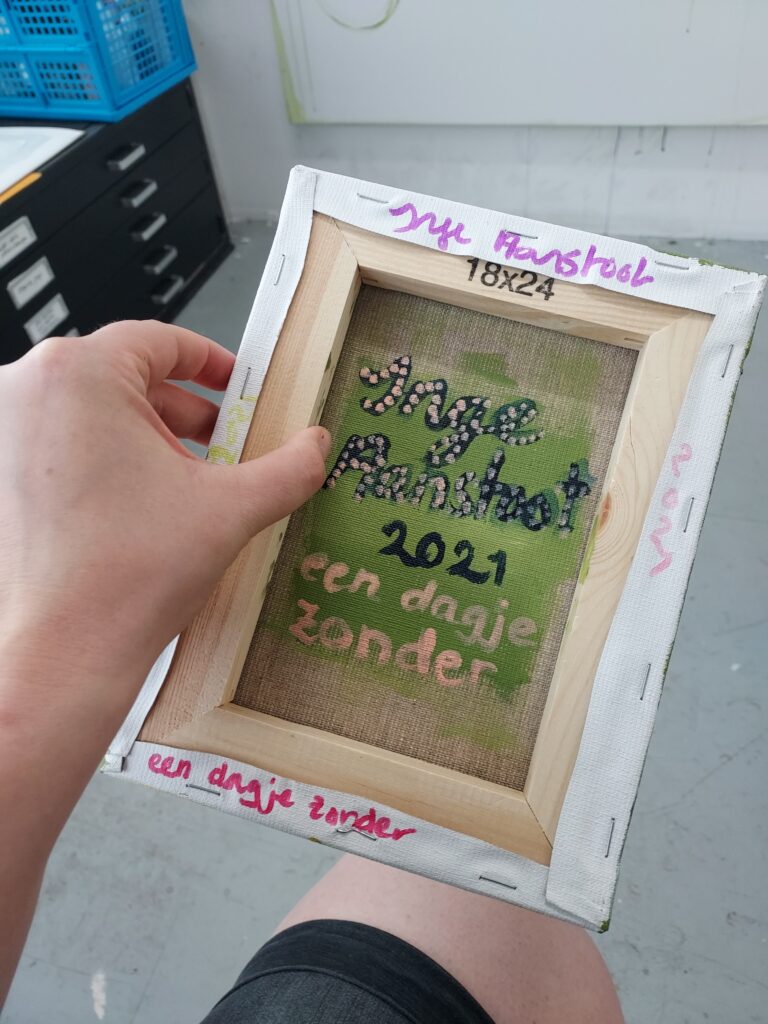 Inge Aanstoot
18x24
Inge
Aanstoot
2021
een dagje
zonder
2021
een dagje zonder